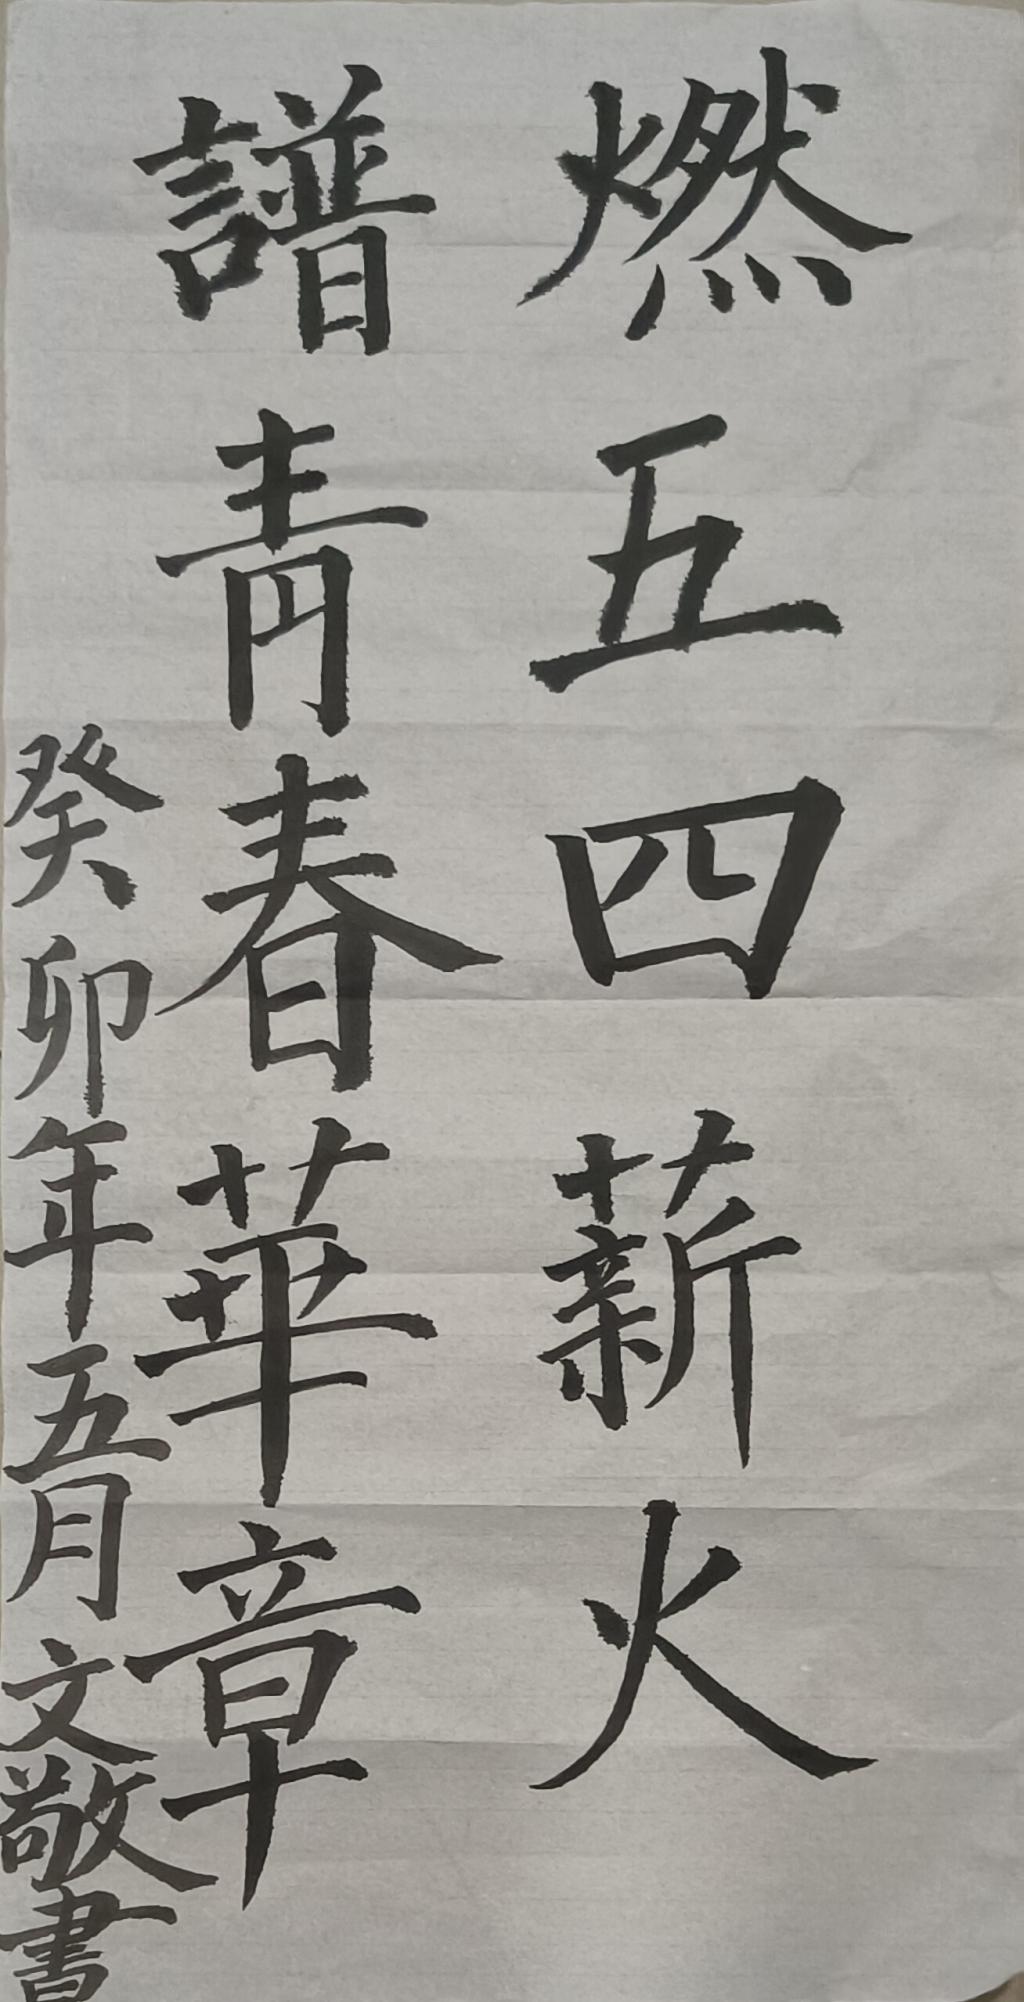 燃五四薪火
譜青春華章
癸卯年五月文敬書